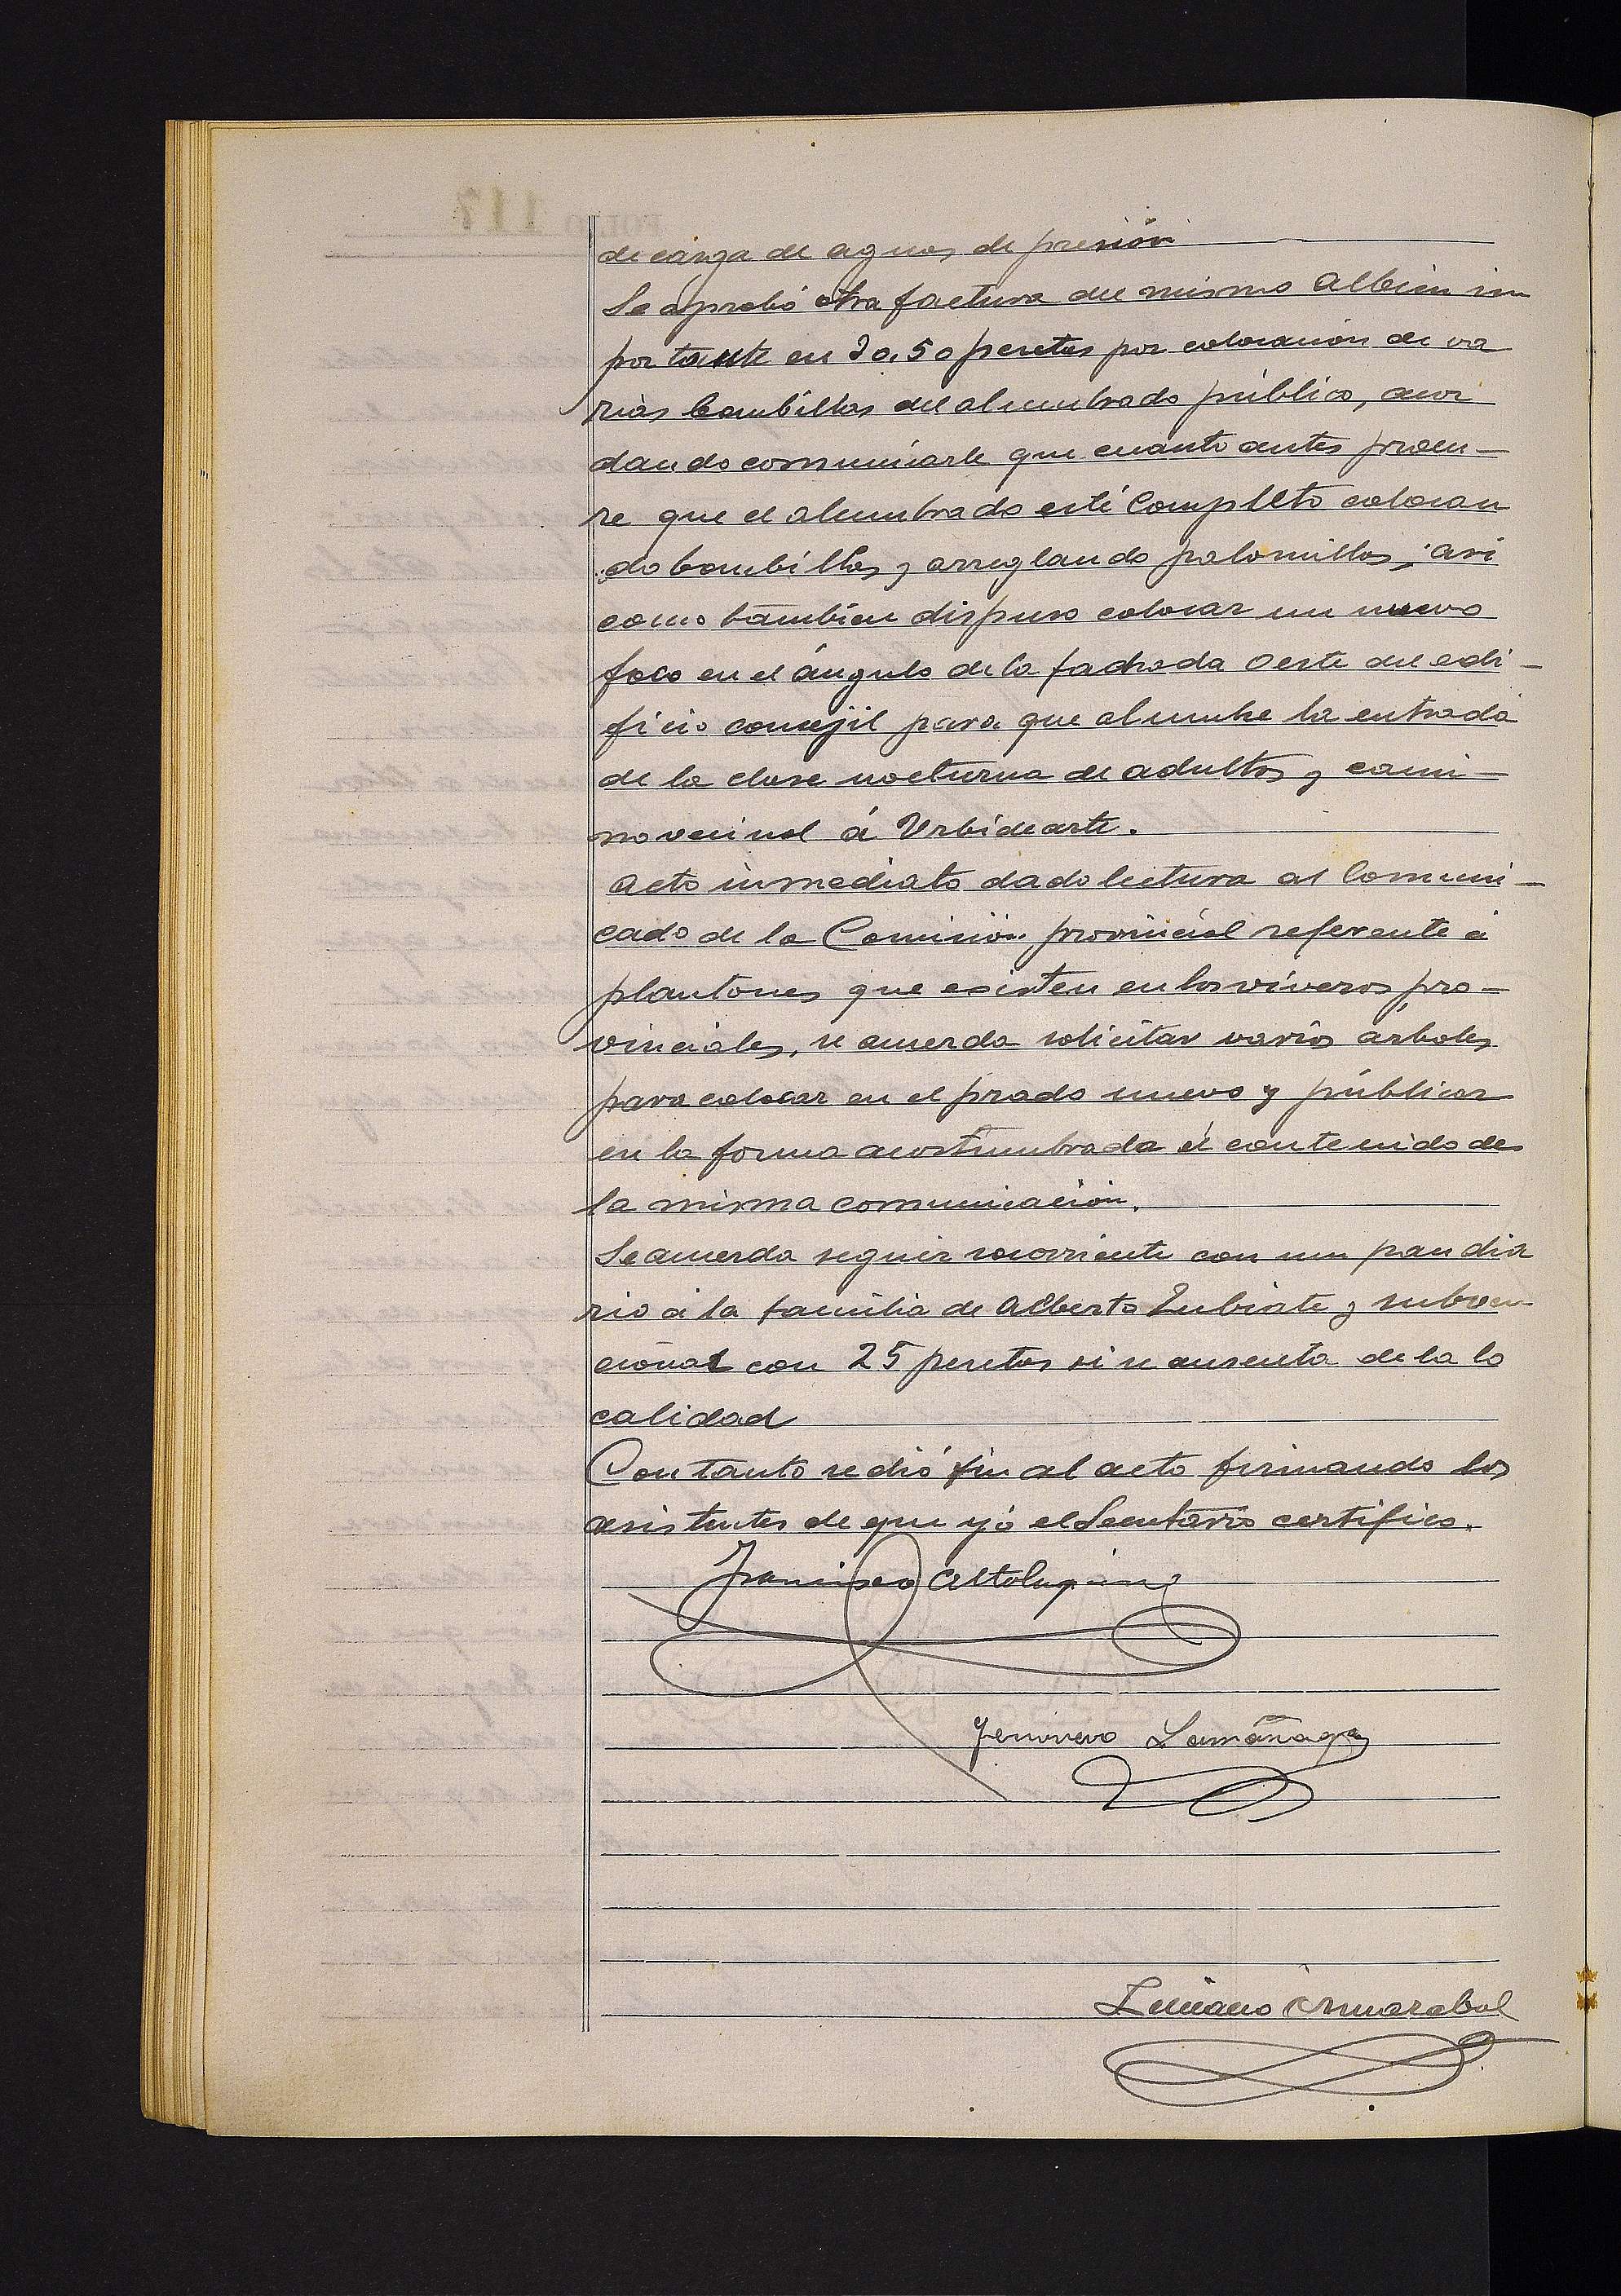 de carga de aguas de presión
Se aprobó otra factura del mismo Albin im
portante en 20,50 pesetas por colocación de va
rias bombillas del alumbrado público, acor
dando comunicarle que cuanto antes procu-
re que el alumbrado esté Completo colocan
do bombillas y arreglando palomillas; asi
como tambien dispuso colocar un nuevo
foco en el ángulo de la fachada Oeste del edi-
ficio concejil para que alumbre la entrada
de la clase nocturna de adultos y cami-
no vecinal á Urbidearte.
Acto inmediato dado lectura al Comuni-
cado de la Comisión provincial referente á
plantones que existen en los viveros pro-
vinciales, se acuerda solicitar varios árboles
para colocar en el prado nuevo y públicar
en la forma acostumbrada el contenido de
la misma comunicación.
Se acuerda seguir socorriente con un pan dia
rio á la familia de Alberto Zubiate y subven
cional con 25 pesetas si se ausenta de la lo
calidad
Con tanto se dió fin al acto firmando los
asistentes de que yó el Secretario certifico.
Francisco Altolaguirre
Genoveva Lamáñaga
Luciano Amarabal
FOLIO 117